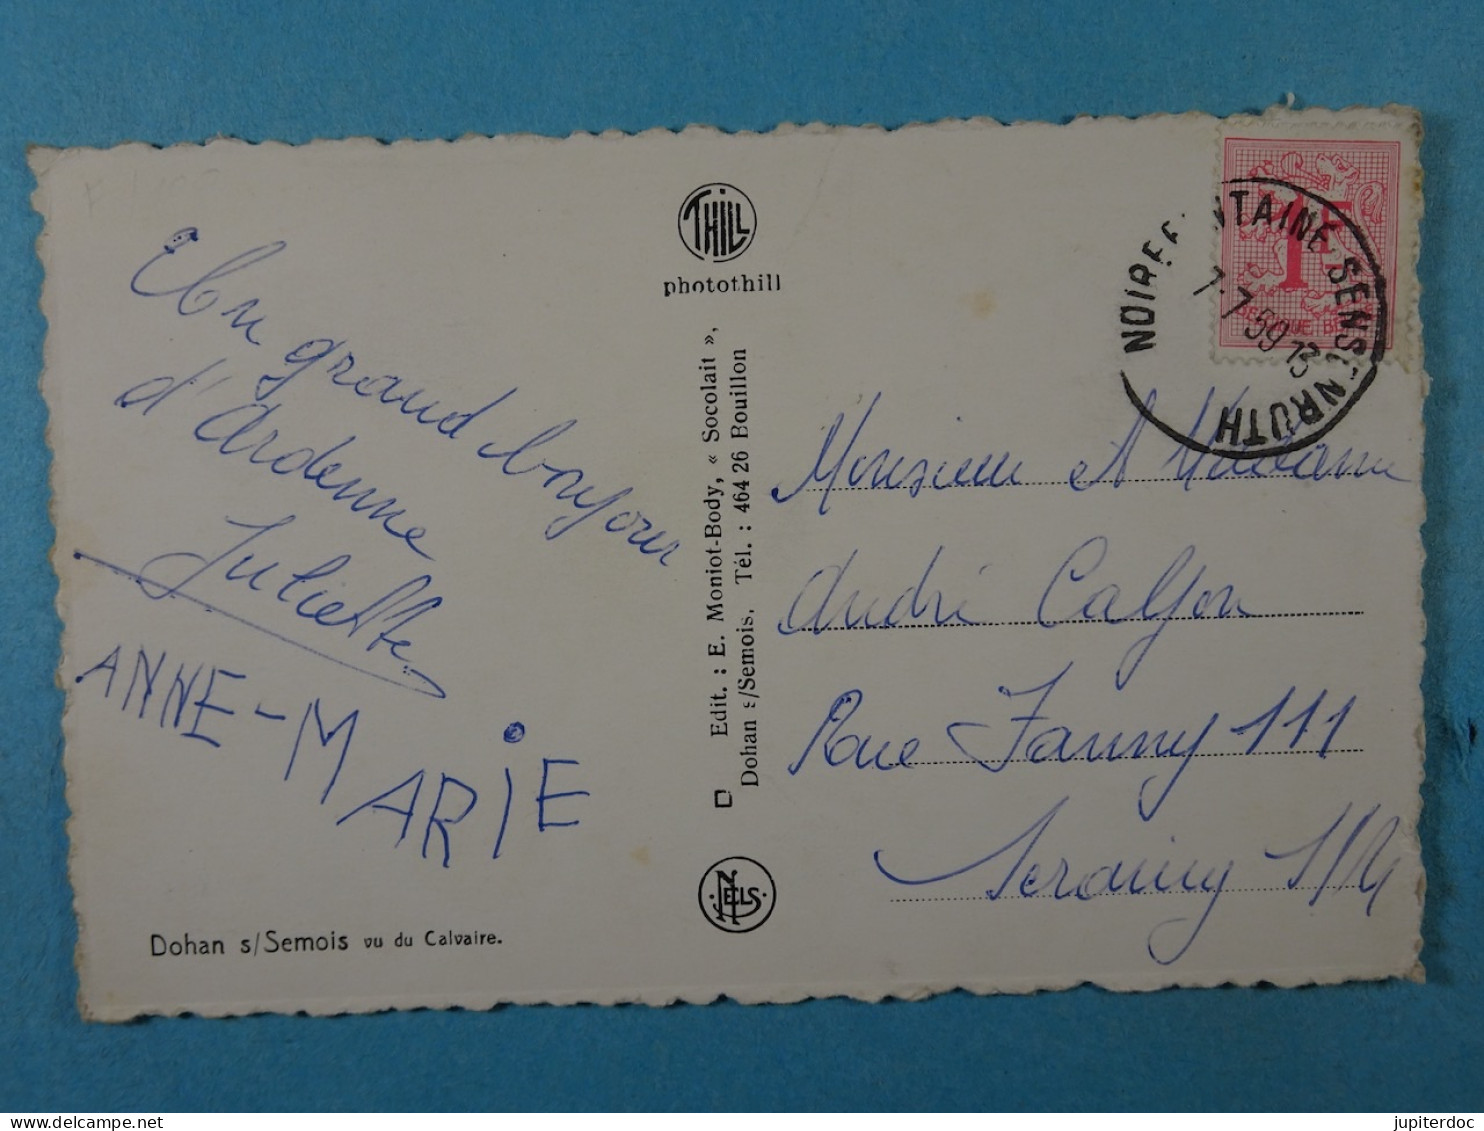 Un grand bonjour
d'Ardenne
Juliette
ANNE-MARIE
Dohan s/Semois vu du Calvaire.
THILL
photothill
Edit. : E. Moniot-Body, « Socolait »,
Dohan s/Semois. Tél. : 464 26 Bouillon
NELS
1F
NOIREFONTAINE-SENSENRUTH
7-7 59 13
Monsieur et Madame
André Calfon
Rue Fanny 111
Seraing S/M
jupiterdoc